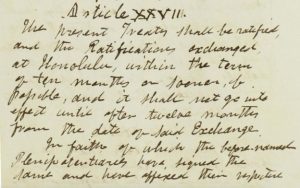 Article XXVII.
The present Treaty shall be ratified,
and the Ratifications exchanged,
at Honolulu, within the term
of ten months or sooner, if
possible, and it shall not go into
effect until after twelve months
from the date of said Exchange.
In faith of which the before named
Plenipotentiaries have signed the
same and have affixed their respective